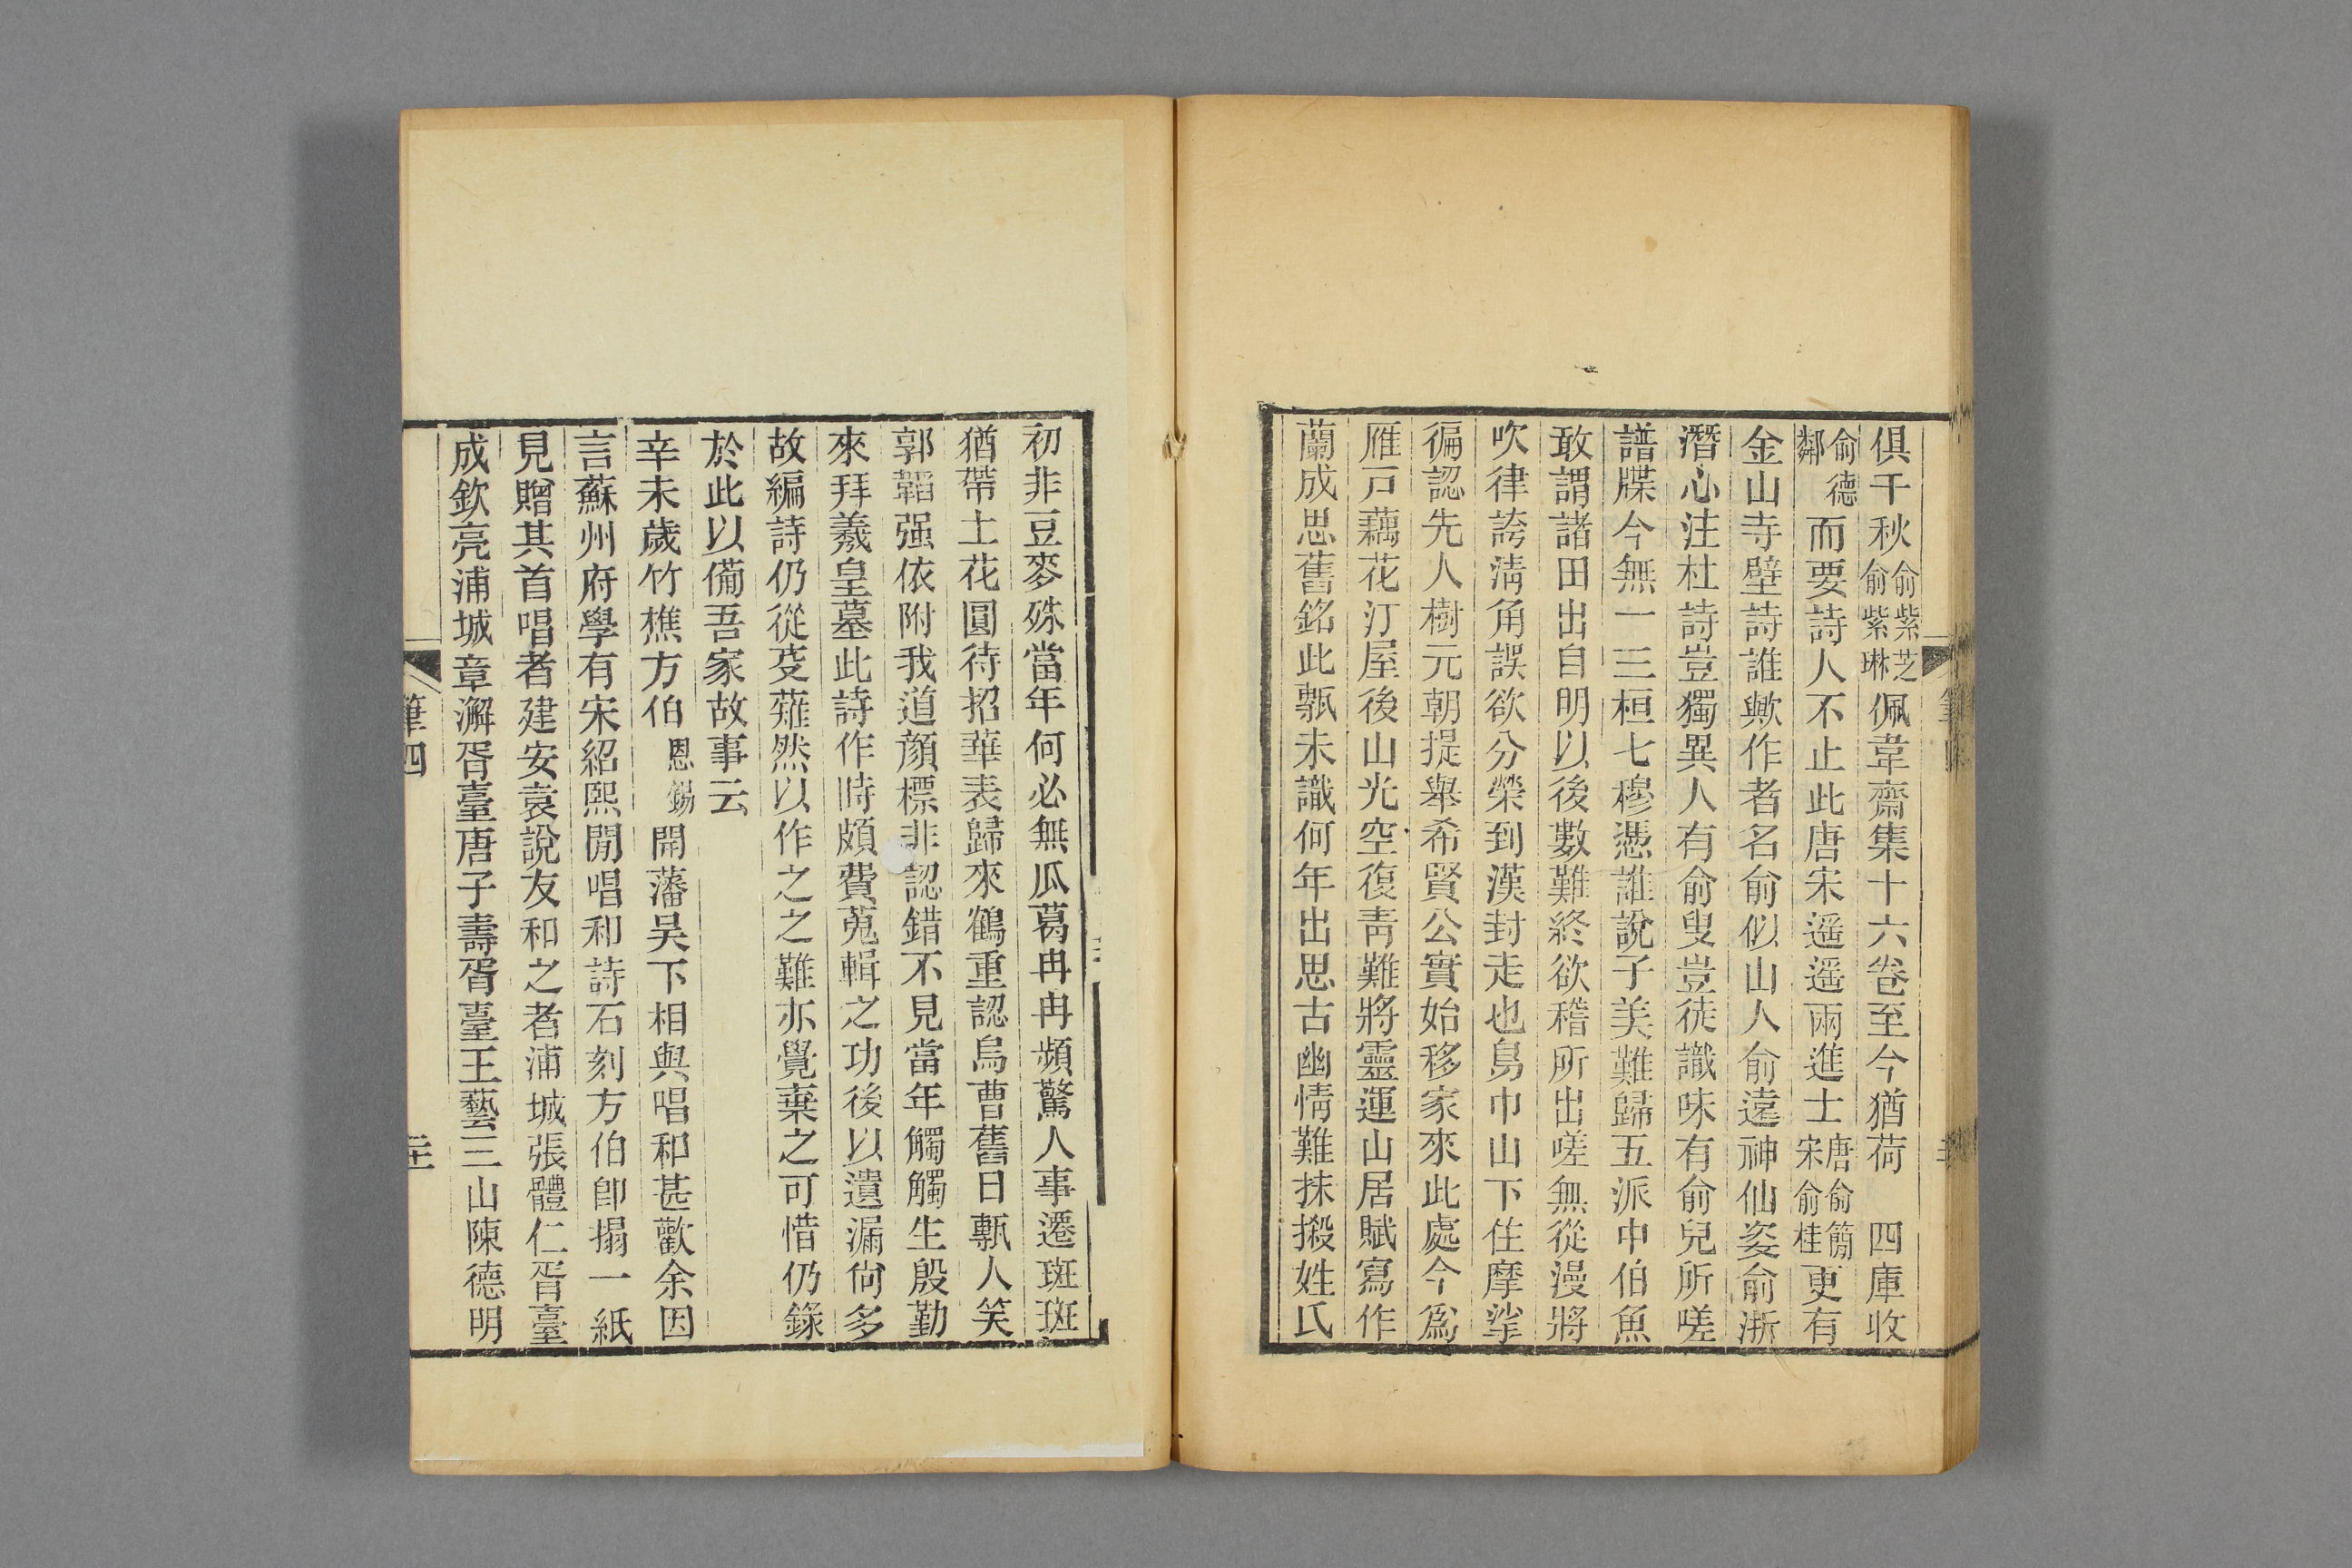 俱千秋俞紫芝俞紫琳佩韋齋集十六卷至今猶荷　四庫收
俞德鄰而要詩人不止此唐宋遥遥兩進士唐俞簡宋俞桂更有
金山寺壁詩誰歟作者名俞似山人俞遠神仙姿俞浙
潛心注杜詩豈獨異人有俞叟豈徒識味有俞兒所嗟
譜牒今無一三桓七穆憑誰說子美難歸五派中伯魚
敢謂諸田出自明以後數難終欲稽所出嗟無從漫將
吹律誇淸角誤欲分榮到漢封走也烏巾山下住摩挲
徧認先人樹元朝提舉希賢公實始移家來此處今爲
雁戸藕花汀屋後山光空復靑難將靈運山居賦寫作
蘭成思舊銘此甎未識何年出思古幽情難抹摋姓氏
初非豆麥殊當年何必無瓜葛冉冉頻驚人事遷斑斑
猶帶土花圓待招華表歸來鶴重認烏曹舊日甎人笑
郭韜强依附我道顏標非認錯不見當年觸觸生殷勤
來拜羲皇墓此詩作時頗費蒐輯之功後以遺漏尙多
故編詩仍從芟薙然以作之之難亦覺棄之可惜仍錄
於此以備吾家故事云
辛未歲竹樵方伯恩錫開藩吳下相與唱和甚歡余因
言蘇州府學有宋紹熙閒唱和詩石刻方伯卽搨一紙
見贈其首唱者建安袁說友和之者浦城張體仁胥臺
成欽亮浦城章澥胥臺唐子壽胥臺王藝三山陳德明
筆四